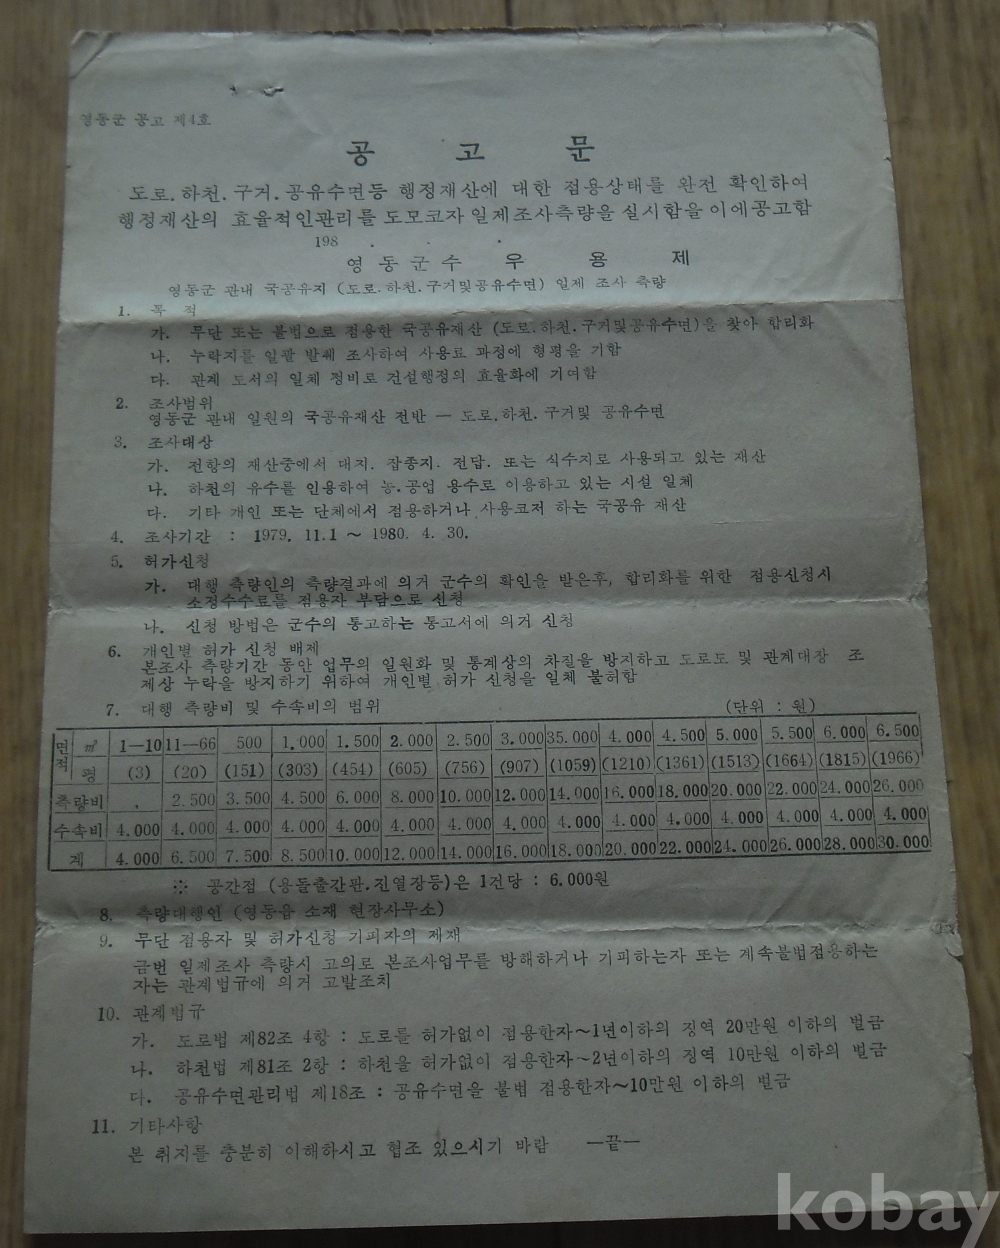 영동군 공고 제4호
공 고 문
도로.하천.구거.공유수면등 행정재산에 대한 점용상태를 완전 확인하여
행정재산의 효율적인관리를 도모코자 일제조사측량을 실시함을 이에공고함
198 . . .
영동군수 우 용 제
영동군 관내 국공유지 (도로.하천.구거및공유수면) 일제 조사 측량
1. 목 적
가. 무단 또는 불법으로 점용한 국공유재산 (도로.하천.구거및공유수면)을 찾아 합리화
나. 누락지를 일괄 발췌 조사하여 사용료 과정에 형평을 기함
다. 관계 도서의 일체 정비로 건설행정의 효율화에 기여함
2. 조사범위
영동군 관내 일원의 국공유재산 전반 — 도로.하천.구거및 공유수면
3. 조사대상
가. 전항의 재산중에서 대지. 잡종지. 전답. 또는 식수지로 사용되고 있는 재산
나. 하천의 유수를 인용하여 농.공업 용수로 이용하고 있는 시설 일체
다. 기타 개인 또는 단체에서 점용하거나 사용코저 하는 국공유 재산
4. 조사기간 : 1979. 11.1 ~ 1980. 4. 30.
5. 허가신청
가. 대행 측량인의 측량결과에 의거 군수의 확인을 받은후, 합리화를 위한 점용신청시
소정수수료를 점용자 부담으로 신청
나. 신청 방법은 군수의 통고하는 통고서에 의거 신청
6. 개인별 허가 신청 배제
본조사 측량기간 동안 업무의 일원화 및 통계상의 차질을 방지하고 도로도 및 관계대장 조
제상 누락을 방지하기 위하여 개인별 허가 신청을 일체 불허함
7. 대행 측량비 및 수속비의 범위 (단위 : 원)
면적 ㎡ 1—10 11—66 500 1.000 1.500 2.000 2.500 3.000 35.000 4.000 4.500 5.000 5.500 6.000 6.500
평 (3) (20) (151) (303) (454) (605) (756) (907) (1059) (1210) (1361) (1513) (1664) (1815) (1966)
측량비 . 2.500 3.500 4.500 6.000 8.000 10.000 12.000 14.000 16.000 18.000 20.000 22.000 24.000 26.000
수속비 4.000 4.000 4.000 4.000 4.000 4.000 4.000 4.000 4.000 4.000 4.000 4.000 4.000 4.000 4.000
계 4.000 6.500 7.500 8.500 10.000 12.000 14.000 16.000 18.000 20.000 22.000 24.000 26.000 28.000 30.000
※ 공간점 (용돌출간판.진열장등)은 1건당 : 6.000원
8. 측량대행인 (영동읍 소재 현장사무소)
9. 무단 점용자 및 허가신청 기피자의 제재
금번 일제조사 측량시 고의로 본조사업무를 방해하거나 기피하는자 또는 계속불법점용하는
자는 관계법규에 의거 고발조치
10. 관계법규
가. 도로법 제82조 4항 : 도로를 허가없이 점용한자~1년이하의 징역 20만원 이하의 벌금
나. 하천법 제81조 2항 : 하천을 허가없이 점용한자~2년이하의 징역 10만원 이하의 벌금
다. 공유수면관리법 제18조 : 공유수면을 불법 점용한자~10만원 이하의 벌금
11. 기타사항
본 취지를 충분히 이해하시고 협조 있으시기 바람 —끝—
kobay